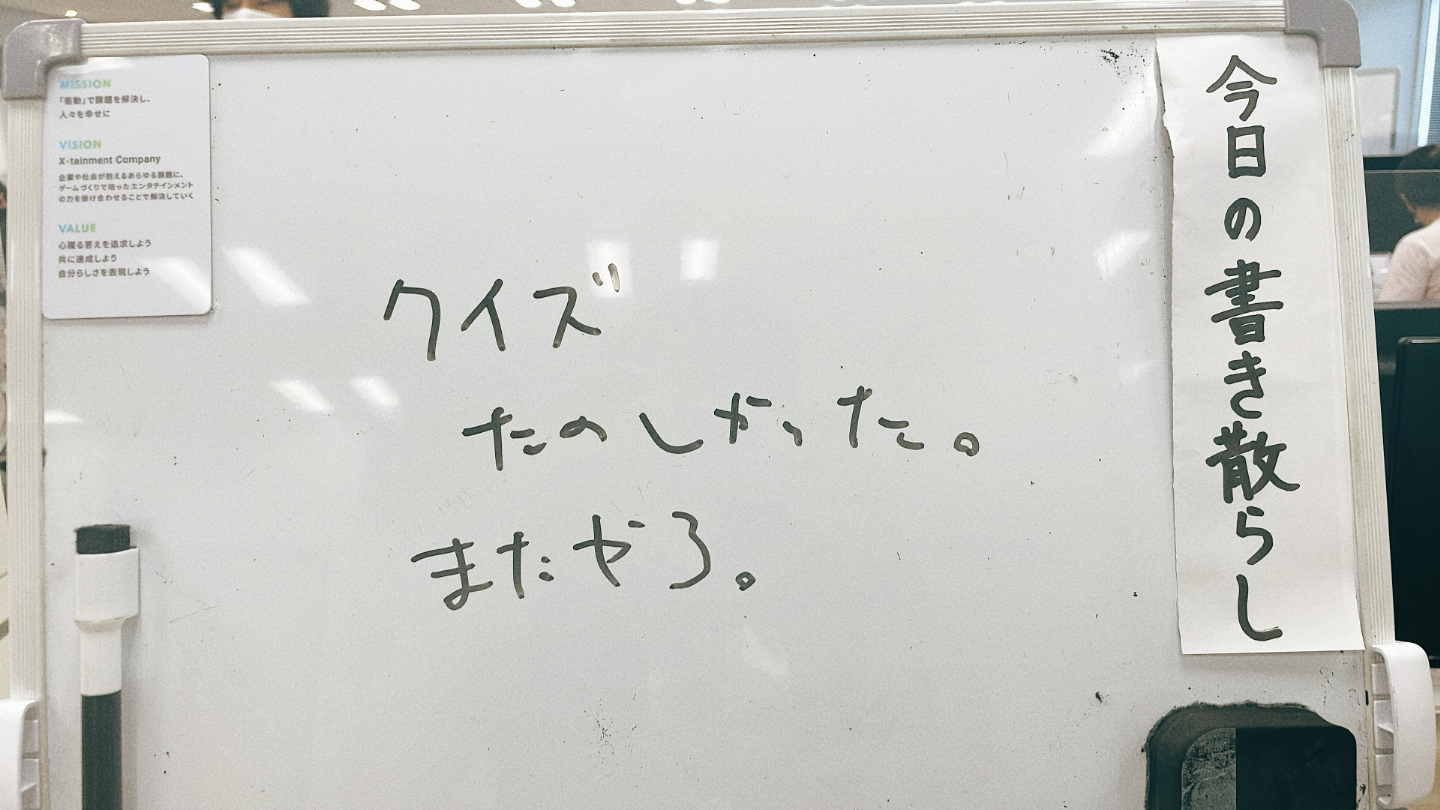 MISSION
「衝動」で課題を解決し、
人々を幸せに
VISION
X-tainment Company
企業や社会が抱えるあらゆる課題に、
ゲームづくりで培ったエンタテインメント
の力を掛け合わせることで解決していく
VALUE
心躍る答えを追求しよう
共に達成しよう
自分らしさを表現しよう
クイズ
たのしかった。
またやろ。
今日の書き散らし